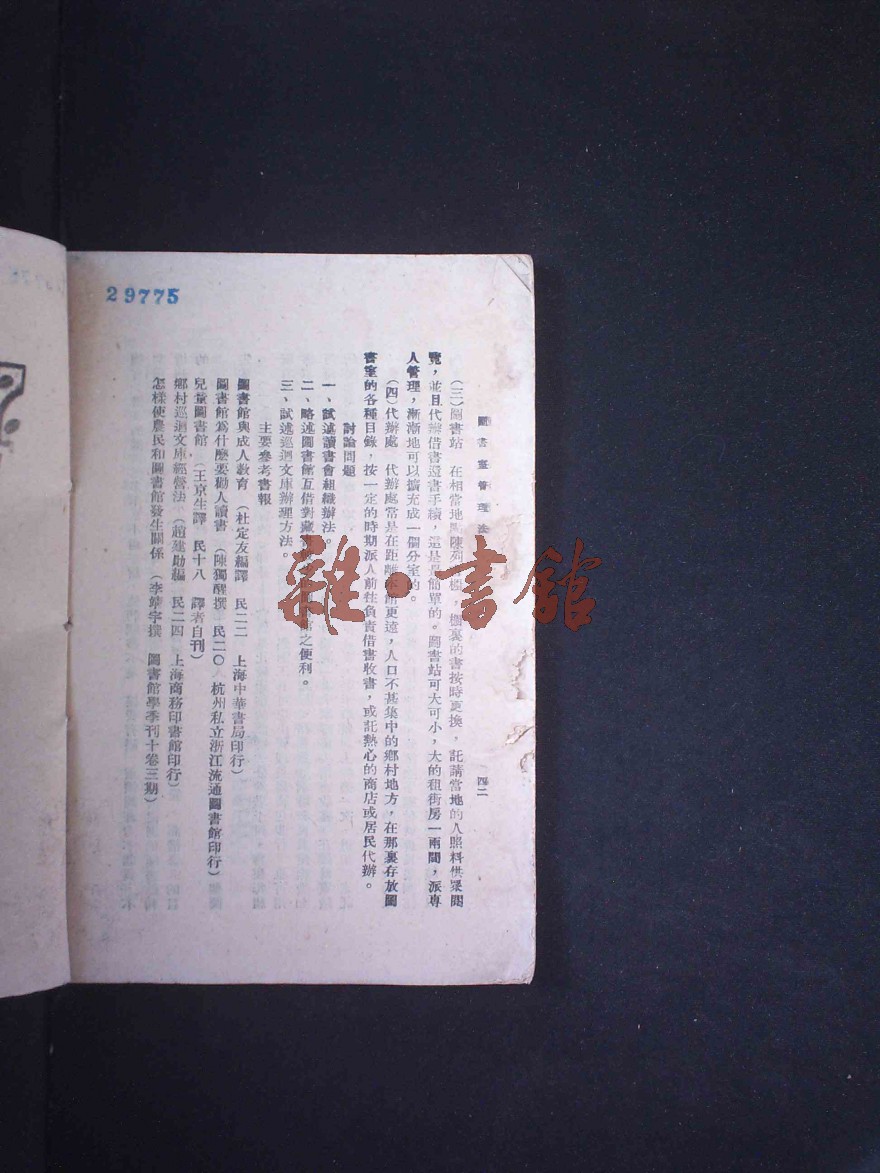 29775
圖書室管理法
四二
(三)圖書站　在相當地點陳列 櫥，櫥裏的書按時更換，託請當地的人照料供眾閱
覽，並且代辦借書還書手續，這是最簡單的。圖書站可大可小，大的租街房一兩間，派專
人管理，漸漸地可以擴充成一個分室的。
(四)代辦處　代辦處常是在距離 館更遠，人口不甚集中的鄉村地方，在那裏存放圖
書室的各種目錄，按一定的時期派人前往負責借書收書，或託熱心的商店或居民代辦。
討論問題
一、試述讀書會組織辦法。
二、略述圖書館互借對藏 館之便利。
三、試述巡迴文庫辦理方法。
主要參考書報
圖書館與成人教育　(杜定友編譯　民二二　上海中華書局印行)
圖書館爲什麼要勸人讀書　(陳獨醒撰　民二〇　杭州私立浙江流通圖書館印行)
兒童圖書館　(王京生譯　民十八　譯者自刊)
鄉村巡迴文庫經營法　(趙建勛編　民二四　上海商務印書館印行)
怎樣使農民和圖書館發生關係　(李靖宇撰　圖書館學季刊十卷三期)
雜·書館